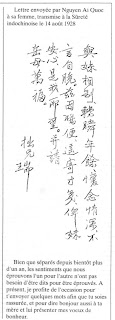 Lettre envoyée par Nguyen Ai Quoc
à sa femme, transmise à la Sûreté
indochinoise le 14 août 1928
與妹相別轉瞬年餘懷念情深不
言自曉茲因鴻便遙寄寸箋俾妹
安心是我所望並請
岳母萬福
拙兄瑞
Bien que séparés depuis bientôt plus
d'un an, les sentiments que nous
éprouvons l'un pour l'autre n'ont pas
besoin d'être dits pour être éprouvés. A
présent, je profite de l'occasion pour
t'envoyer quelques mots afin que tu sois
rassurée, et pour dire bonjour aussi à ta
mère et lui présenter mes vœux de
bonheur.